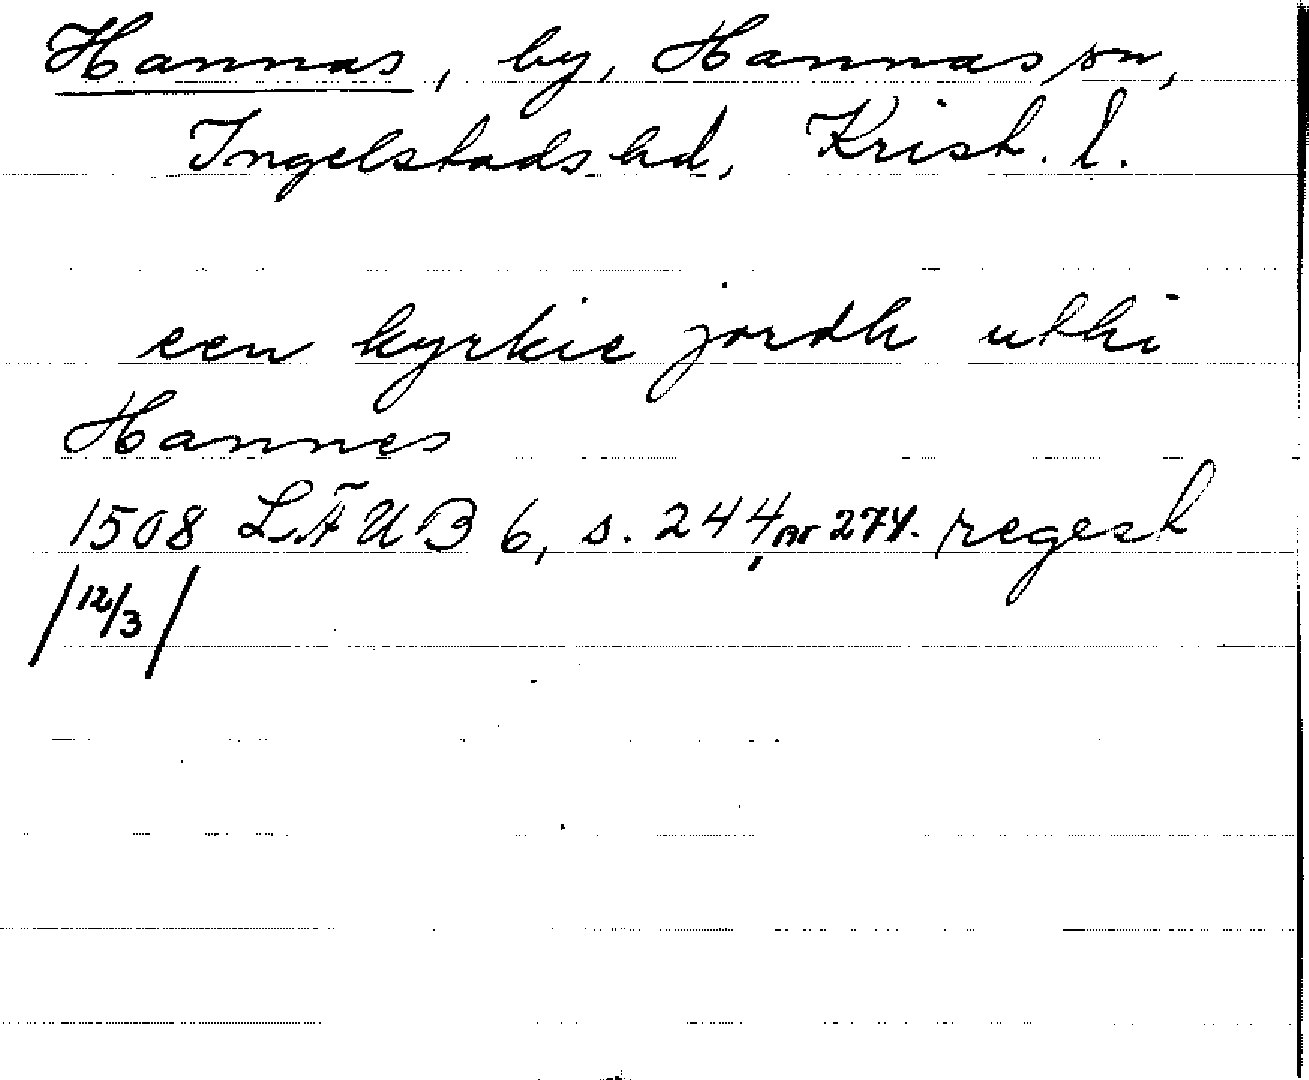 Hannas, by, Hannas sn,
Ingelstads hd, Krist. l.
een kyrkie jordh uthi
Hannes
1508 LÄUB 6, s. 244, nr 274. regest
/12/3/